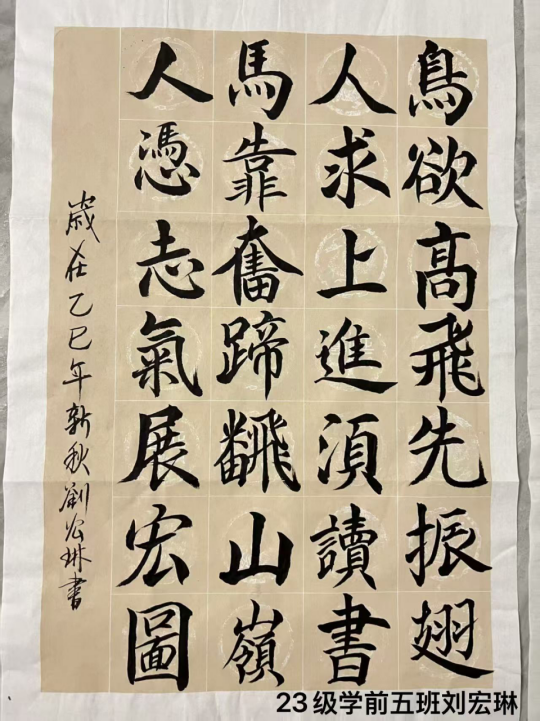 鳥欲高飛先振翅
人求上進須讀書
馬靠奮蹄飜山嶺
人憑志氣展宏圖
歲在乙巳年新秋劉宏琳書
23级学前五班刘宏琳